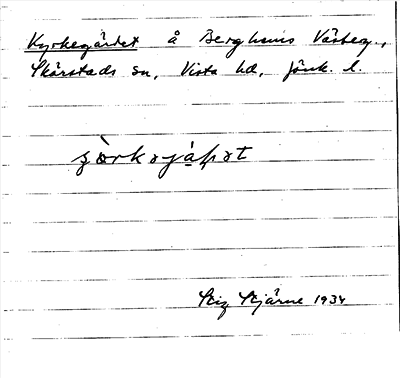 Kyrkegärdet å Berghems Västerg.,
Skärstads sn, Vista hd, Jönk. l.
Stig Stjärne 1934